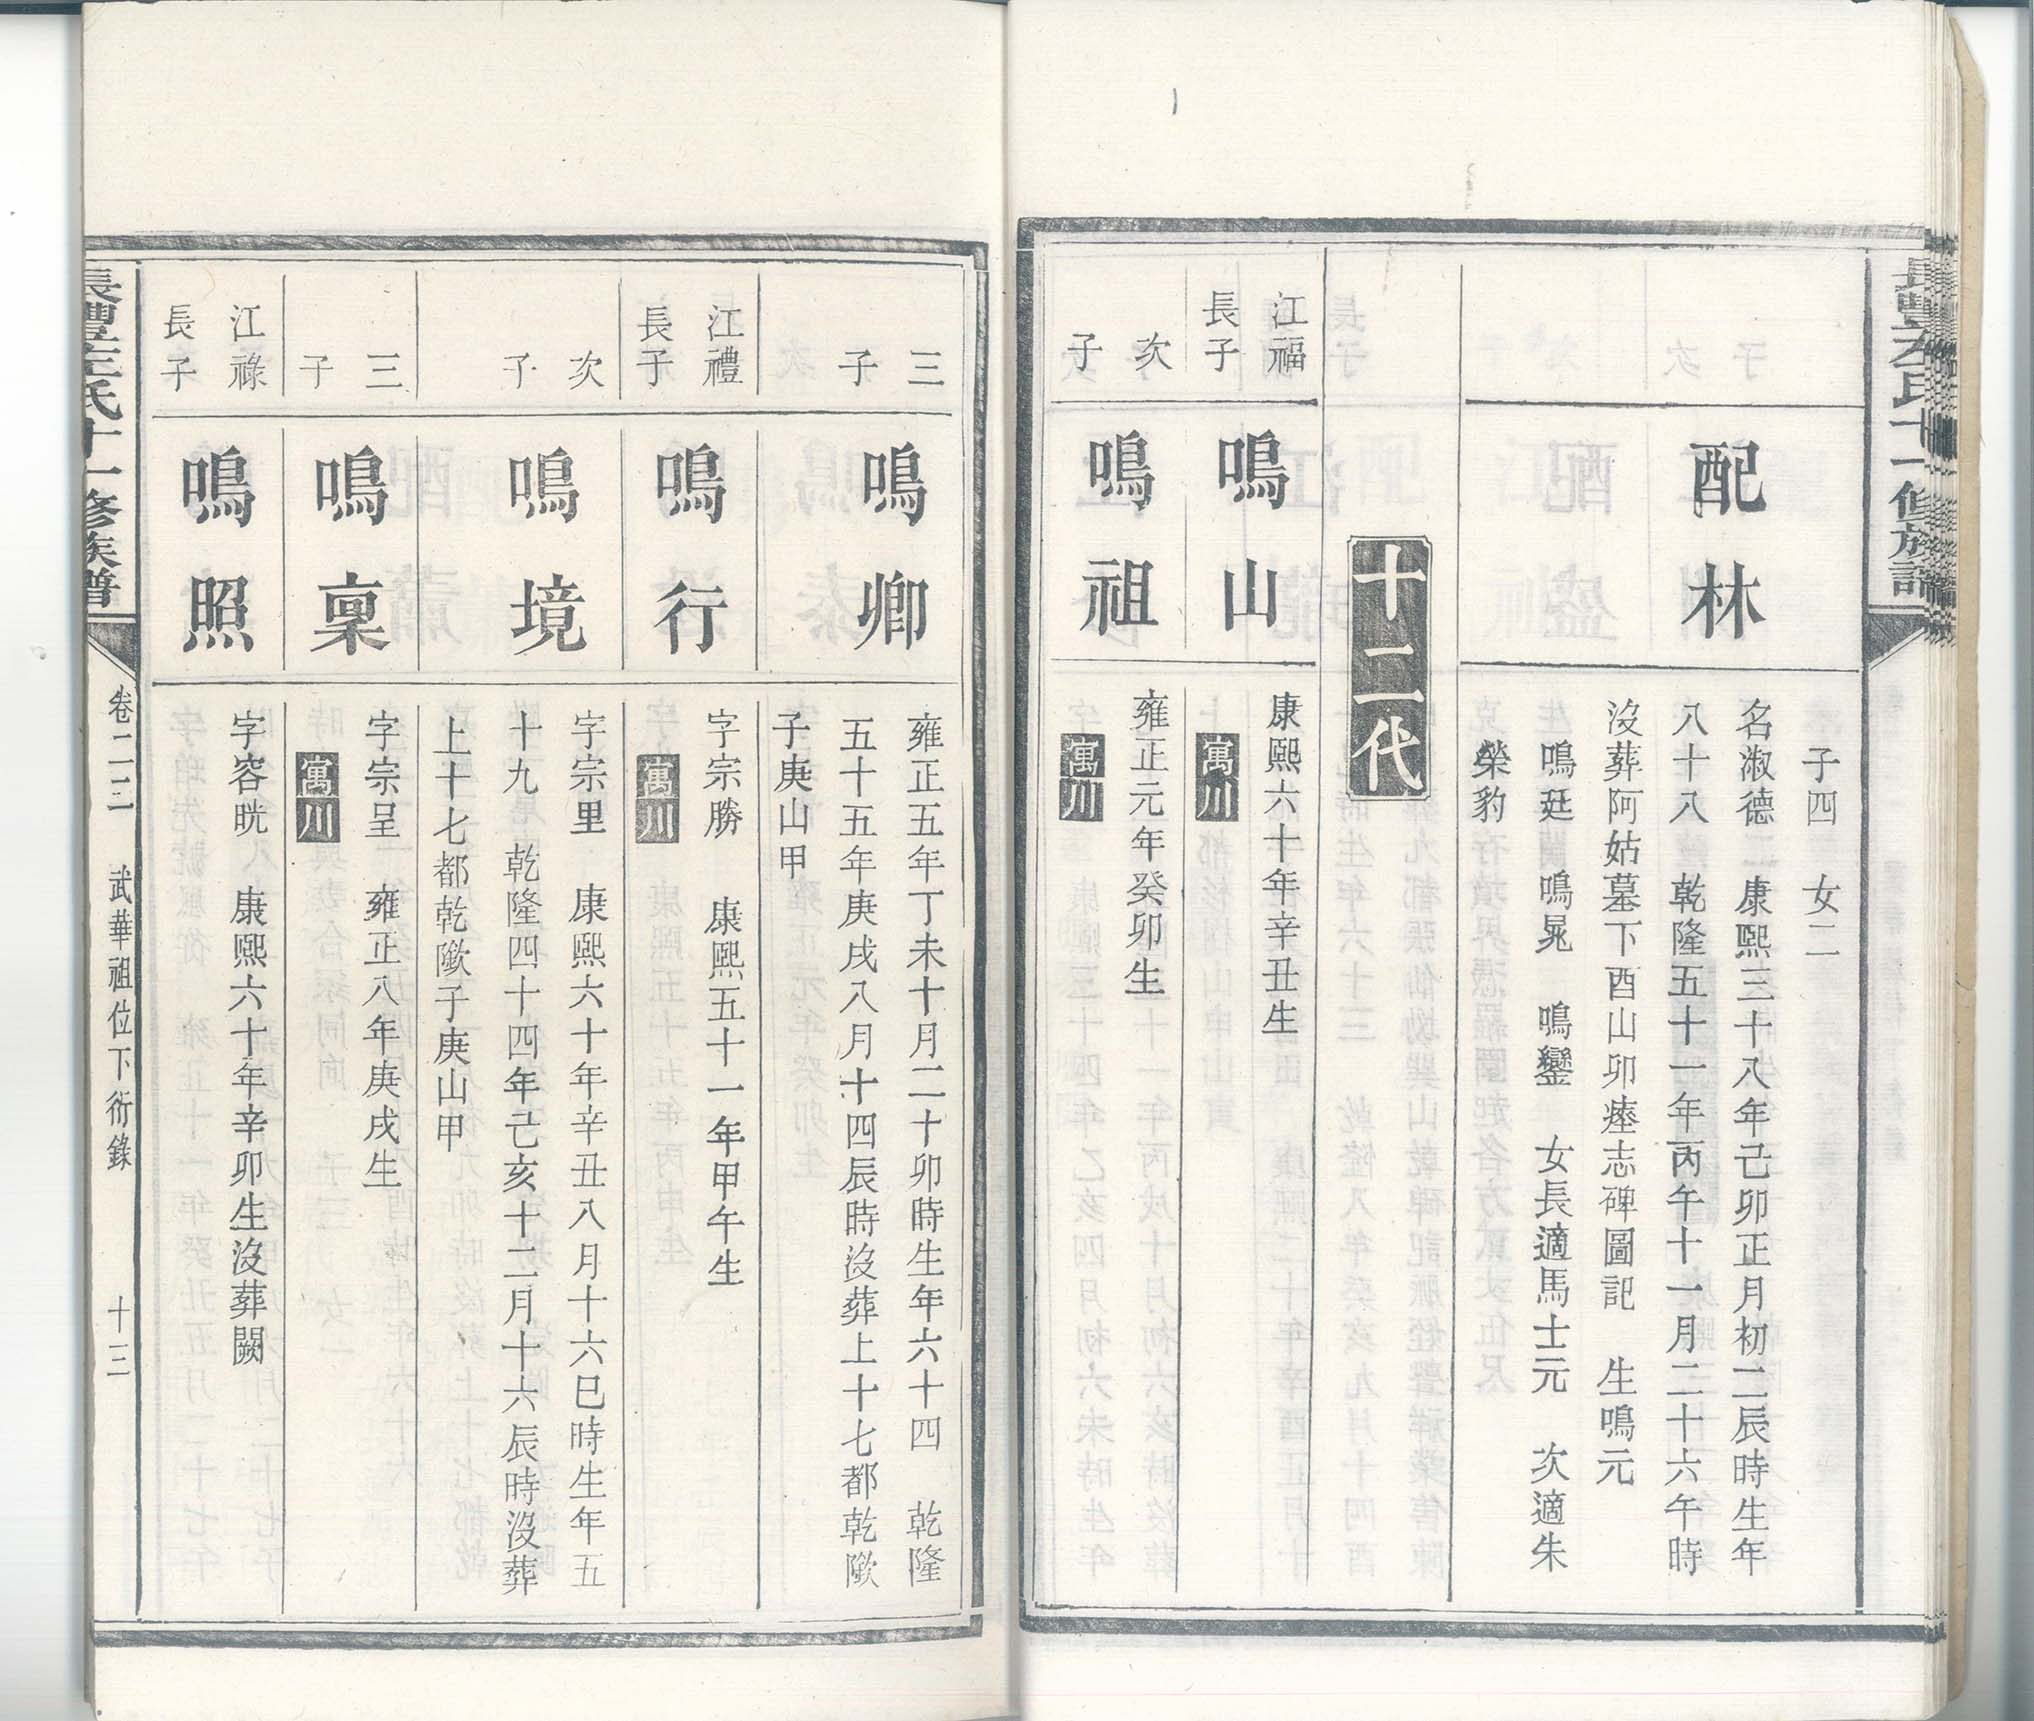 長豐左氏十一修族譜
配林
子四　女二
名淑德　康熙三十八年己卯正月初二辰時生年
八十八　乾隆五十一年丙午十一月二十六午時
沒葬阿姑墓下酉山卯瘞志碑圖記　生鳴元
鳴廷　鳴晃　鳴鑾　女長適馬士元　次適朱
榮豹
十二代
江福
長子
鳴山
康熙六十年辛丑生
寓川
次
子
鳴祖
雍正元年癸卯生
寓川
三
子
鳴卿
雍正五年丁未十月二十卯時生年六十四　乾隆
五十五年庚戌八月十四辰時沒葬上十七都乾歘
子庚山甲
江禮
長子
鳴行
字宗勝　康熙五十一年甲午生
寓川
次
子
鳴境
字宗里　康熙六十年辛丑八月十六巳時生年五
十九　乾隆四十四年己亥十二月十六辰時沒葬
上十七都乾歘子庚山甲
三
子
鳴稟
字宗呈　雍正八年庚戌生
寓川
江祿
長子
鳴照
字容晄　康熙六十年辛卯生沒葬闕
長豐左氏十一修族譜
卷二三　武華祖位下衍錄　十三